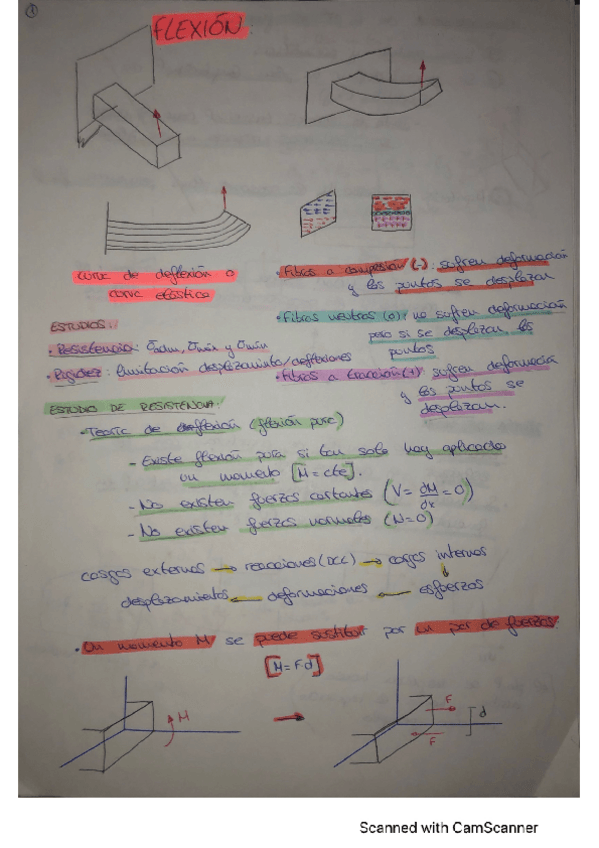 ①
FLEXIÓN.
curva de deflexión o
curva elástica
• Fibras a compresión (-): sufren deformación
y los puntos se desplazan
• Fibras neutras (0): no sufren deformación
pero si se desplazan los
puntos
• Fibras a tracción (+): sufren deformación
y los puntos se
desplazan.
ESTUDIOS:
• Resistencia: σadm, σmáx y σmín
• Rigidez: limitación desplazamiento/deflexiones
ESTUDIO DE RESISTENCIA:
• Teoría de flexión (flexión pura)
- Existe flexión pura si tan solo hay aplicado
un momento [M = cte].
- No existen fuerzas cortantes (V = dM/dx = 0)
- No existen fuerzas normales (N=0)
cargas externas → reacciones (DCL) → cargas internas
desplazamientos ← deformaciones ← esfuerzos
• Un momento M se puede sustituir por un par de fuerzas.
[M = F d]
M
F
d
F
Scanned with CamScanner